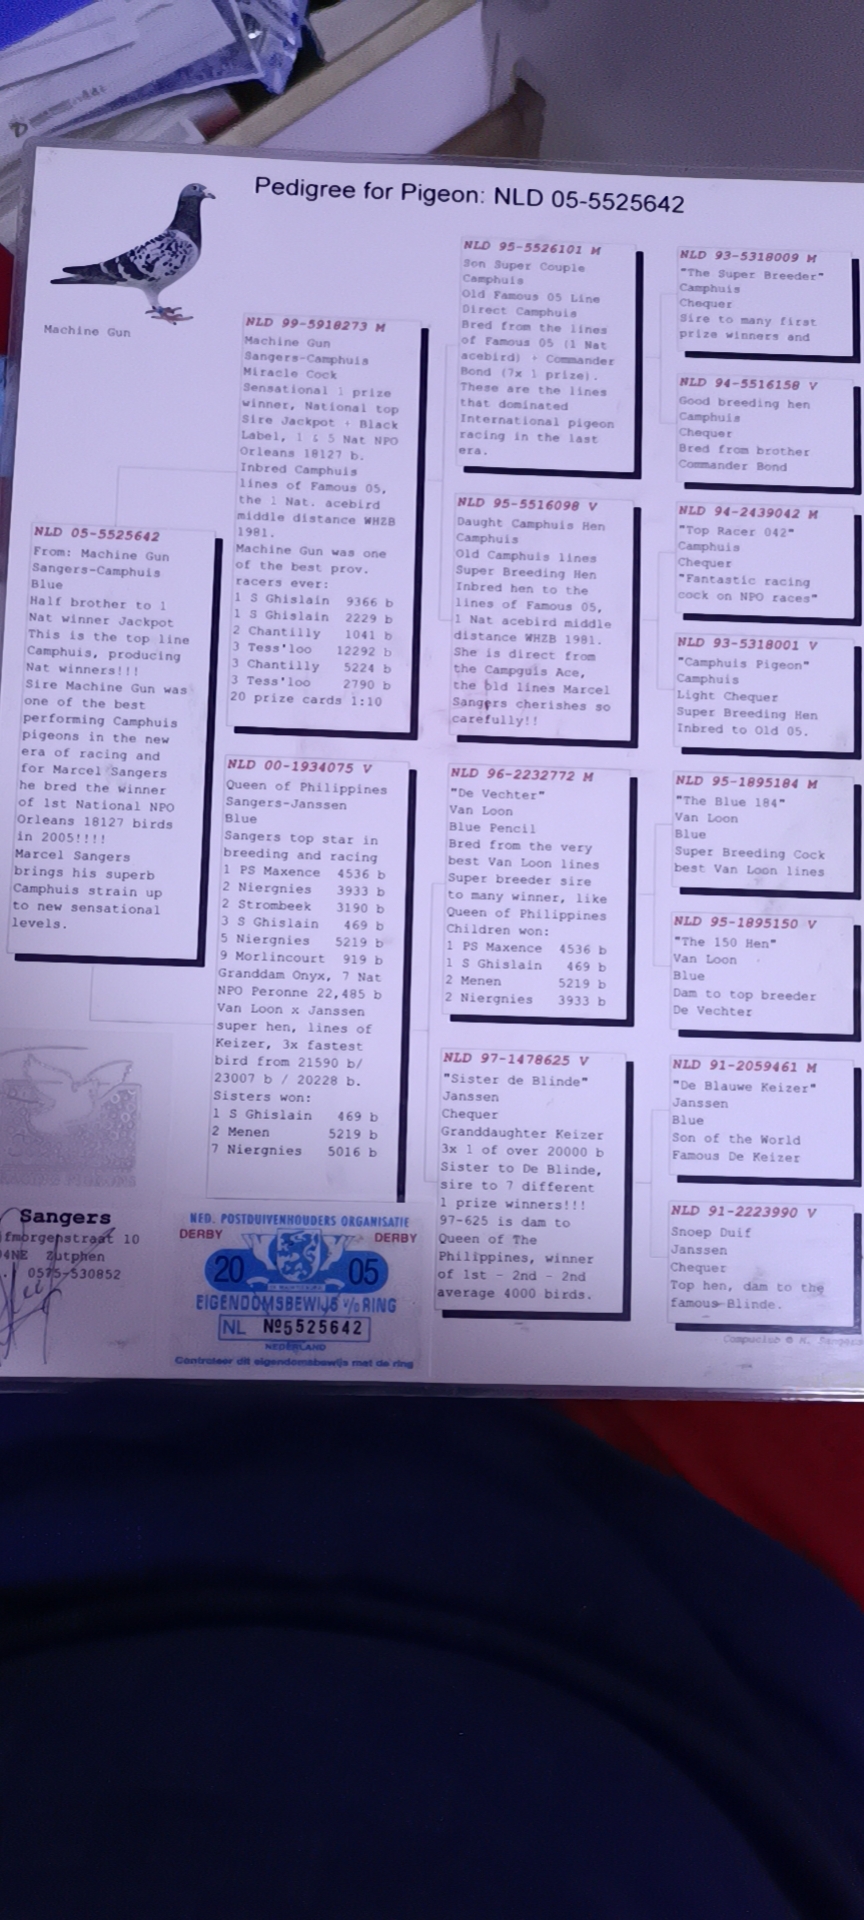 Pedigree for Pigeon: NLD 05-5525642
Machine Gun
NLD 05-5525642
From: Machine Gun
Sangers-Camphuis
Blue
Half brother to 1
Nat winner Jackpot
This is the top line
Camphuis, producing
Nat winners!!!
Sire Machine Gun was
one of the best
performing Camphuis
pigeons in the new
era of racing and
for Marcel Sangers
he bred the winner
of 1st National NPO
Orleans 18127 birds
in 2005!!!!
Marcel Sangers
brings his superb
Camphuis strain up
to new sensational
levels.
NLD 99-5918273 M
Machine Gun
Sangers-Camphuis
Miracle Cock
Sensational 1 prize
winner, National top
Sire Jackpot + Black
Label, 1 & 5 Nat NPO
Orleans 18127 b.
Inbred Camphuis
lines of Famous 05,
the 1 Nat. acebird
middle distance WHZB
1981.
Machine Gun was one
of the best prov.
racers ever:
1 S Ghislain 9366 b
1 S Ghislain 2229 b
2 Chantilly 1041 b
3 Tess'loo 12292 b
3 Chantilly 5224 b
3 Tess'loo 2790 b
20 prize cards 1:10
NLD 00-1934075 V
Queen of Philippines
Sangers-Janssen
Blue
Sangers top star in
breeding and racing
1 PS Maxence 4536 b
2 Niergnies 3933 b
2 Strombeek 3190 b
3 S Ghislain 469 b
5 Niergnies 5219 b
9 Morlincourt 919 b
Granddam Onyx, 7 Nat
NPO Peronne 22,485 b
Van Loon x Janssen
super hen, lines of
Keizer, 3x fastest
bird from 21590 b/
23007 b / 20228 b.
Sisters won:
1 S Ghislain 469 b
2 Menen 5219 b
7 Niergnies 5016 b
NLD 95-5526101 M
Son Super Couple
Camphuis
Old Famous 05 Line
Direct Camphuis
Bred from the lines
of Famous 05 (1 Nat
acebird) + Commander
Bond (7x 1 prize).
These are the lines
that dominated
International pigeon
racing in the last
era.
NLD 95-5516098 V
Daught Camphuis Hen
Camphuis
Old Camphuis lines
Super Breeding Hen
Inbred hen to the
lines of Famous 05,
1 Nat acebird middle
distance WHZB 1981.
She is direct from
the Campguis Ace,
the old lines Marcel
Sangers cherishes so
carefully!!
NLD 96-2232772 M
"De Vechter"
Van Loon
Blue Pencil
Bred from the very
best Van Loon lines
Super breeder sire
to many winner, like
Queen of Philippines
Children won:
1 PS Maxence 4536 b
1 S Ghislain 469 b
2 Menen 5219 b
2 Niergnies 3933 b
NLD 97-1478625 V
"Sister de Blinde"
Janssen
Chequer
Granddaughter Keizer
3x 1 of over 20000 b
Sister to De Blinde,
sire to 7 different
1 prize winners!!!
97-625 is dam to
Queen of The
Philippines, winner
of 1st - 2nd - 2nd
average 4000 birds.
NLD 93-5318009 M
"The Super Breeder"
Camphuis
Chequer
Sire to many first
prize winners and
NLD 94-5516158 V
Good breeding hen
Camphuis
Chequer
Bred from brother
Commander Bond
NLD 94-2439042 M
"Top Racer 042"
Camphuis
Chequer
"Fantastic racing
cock on NPO races"
NLD 93-5318001 V
"Camphuis Pigeon"
Camphuis
Light Chequer
Super Breeding Hen
Inbred to Old 05.
NLD 95-1895184 M
"The Blue 184"
Van Loon
Blue
Super Breeding Cock
best Van Loon lines
NLD 95-1895150 V
"The 150 Hen"
Van Loon
Blue
Dam to top breeder
De Vechter
NLD 91-2059461 M
"De Blauwe Keizer"
Janssen
Blue
Son of the World
Famous De Keizer
NLD 91-2223990 V
Snoep Duif
Janssen
Chequer
Top hen, dam to the
famous-Blinde.
Sangers
fmorgenstraat 10
4NE Zutphen
0575-530852
NED. POSTDUIVENHOUDERS ORGANISATIE
DERBY DERBY
20 05
EIGENDOMSBEWIJS v/o RING
NL №5525642
NEDERLAND
Controleer dit eigendomsbewijs met de ring
Compuclub © M. Sangers